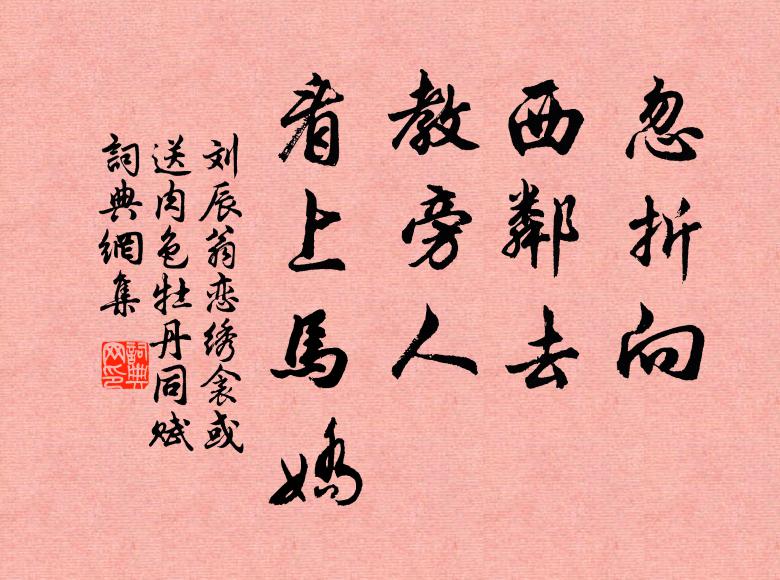 忽折向
西鄰去
教旁人
看上馬嬌
刘辰翁恋绣衾或
送肉色牡丹同赋
詞典網集
詞典网印